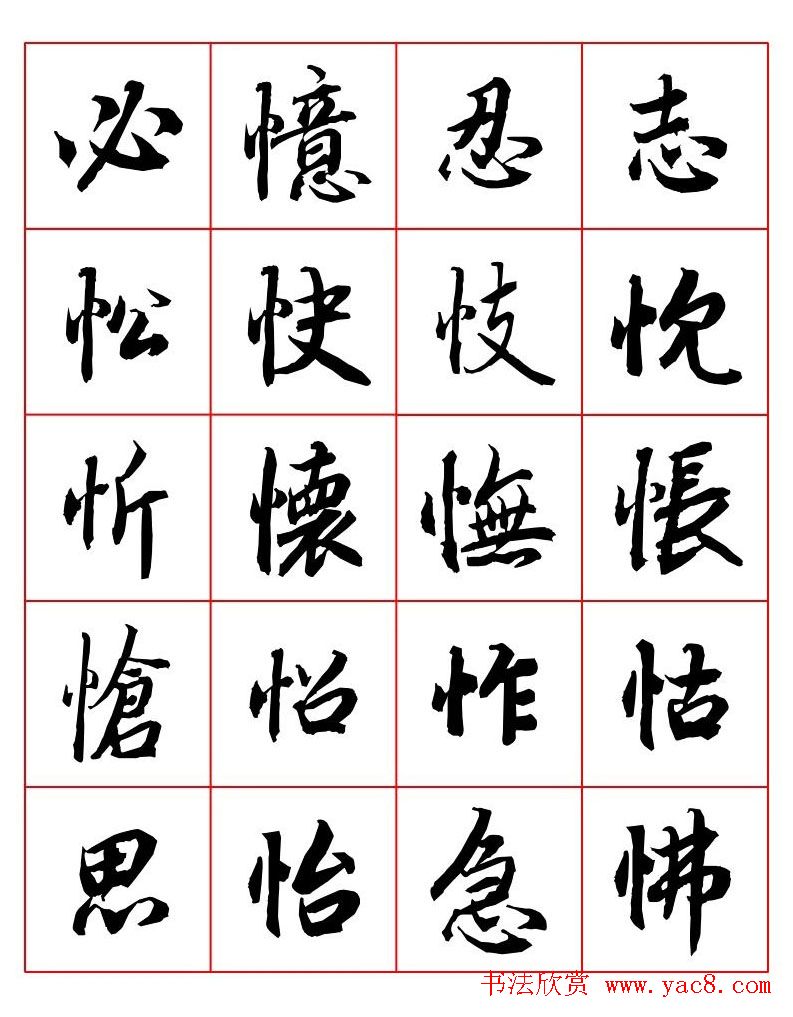 必 憶 忍 志
忪 快 忮 忱
忻 懷 憮 悵
愴 怊 怍 怙
思 怡 急 怫
书法欣赏 www.yac8.com